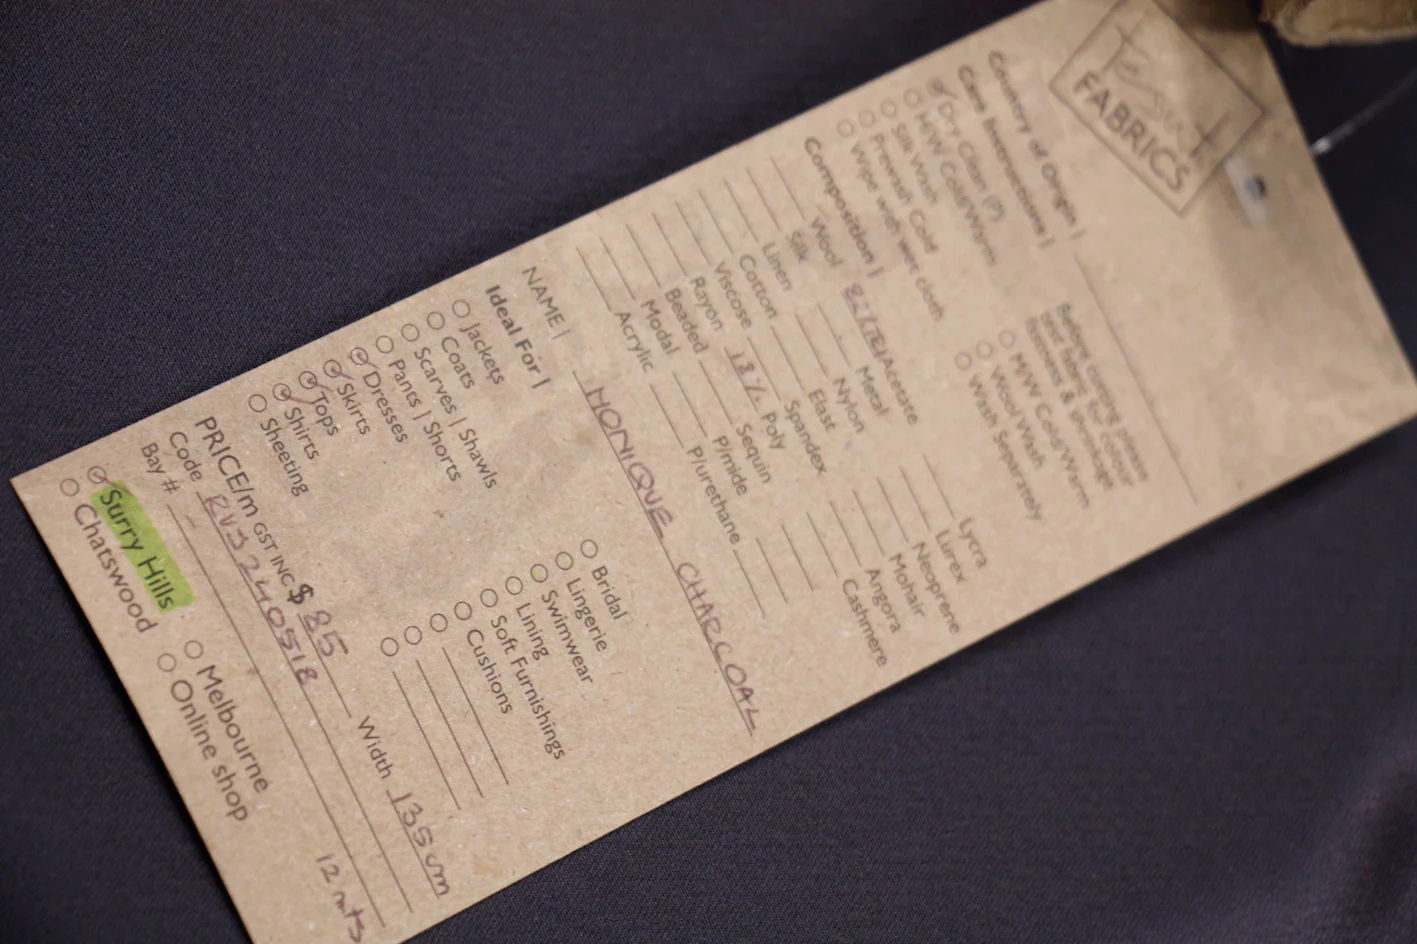 FABRICS
Country of Origin |
Care Instructions |
Dry Clean (P)
M/W Cold/Warm
Silk Wash
Prewash Cold
Wipe with wet cloth
Before cutting please
test fabric for colour
fastness & shrinkage
M/W Cold/Warm
Wool Wash
Wash Separately
Composition |
Wool
Silk
Linen
Cotton
Viscose
Rayon
Beaded
Modal
Acrylic
Acetate
Metal
Nylon
Elast
Spandex
18% Poly
Sequin
P/mide
P/urethane
Lycra
Lurex
Neoprene
Mohair
Angora
Cashmere
NAME | MONIQUE CHARCOAL
Ideal For |
Jackets
Coats
Scarves | Shawls
Pants | Shorts
Dresses
Skirts
Tops
Shirts
Sheeting
Bridal
Lingerie
Swimwear
Lining
Soft Furnishings
Cushions
PRICE/m GST INC $ 85 Width 135cm
Code RVS240518
Bay # 12 mts
Surry Hills
Chatswood
Melbourne
Online shop